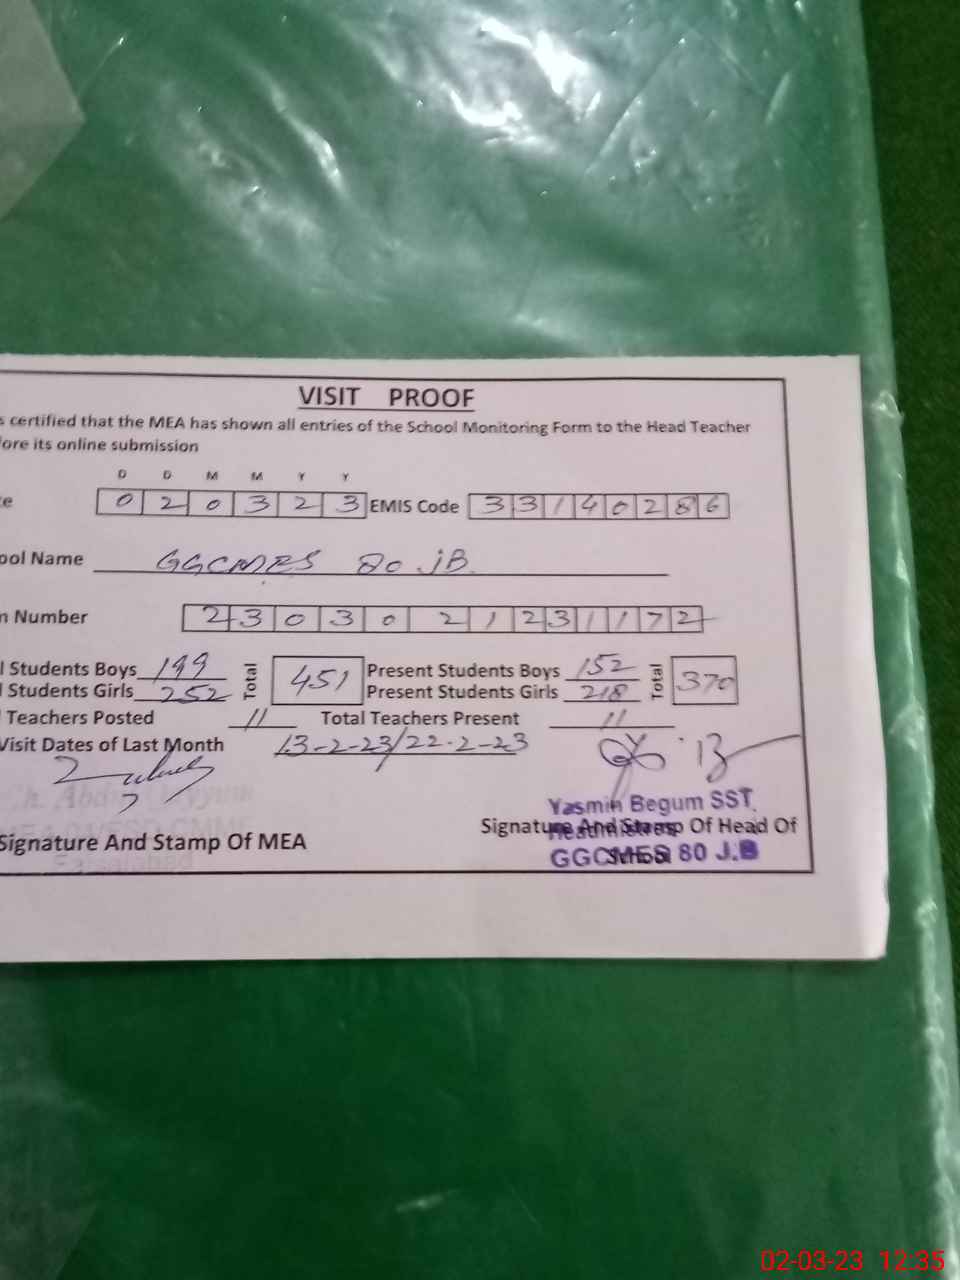 VISIT PROOF
s certified that the MEA has shown all entries of the School Monitoring Form to the Head Teacher
fore its online submission
D D M M Y Y
te 0 2 0 3 2 3 EMIS Code 3 3 1 4 0 2 8 6
ool Name GGCMES 80 JB
n Number 2 3 0 3 0 2 1 2 3 1 1 7 2
l Students Boys 199 Total 451 Present Students Boys 152 Total 370
l Students Girls 252 Present Students Girls 218
Teachers Posted 11 Total Teachers Present 11
Visit Dates of Last Month 13-2-23/22-2-23
Yasmin Begum SST
Signature And Stamp Of MEA Signature And Stamp Of Head Of
Headmistress
School
GGCMES 80 J.B
Faisalabad
02-03-23 12:35